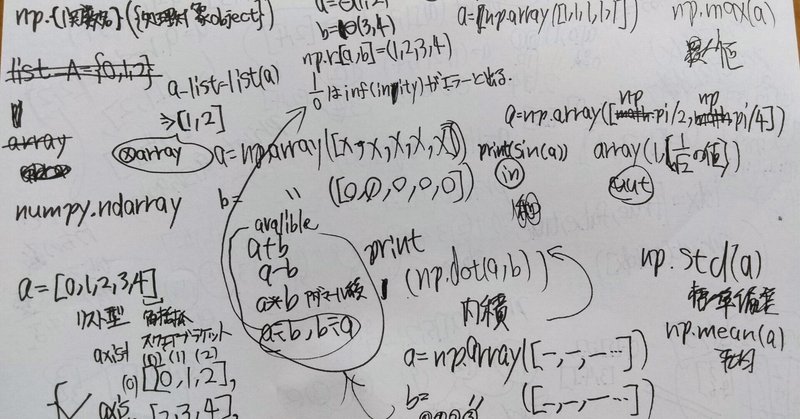 np.{関数名}({処理対象object})
list A={0,1,2}
a-list=list(a)
⇒[1,2]
array
numpy.ndarray
b=⊖(3,4)
np.r[a,b]=(1,2,3,4)
1/0はinf(inity)がエラーと出る.
a=[np.array([1,1,1,1,1])
np.max(a)
最大値
a=np.array([np.pi/2,np.pi/4])
print(sin(a))
in
array(1,[1/√2の値])
out
⊗array
a=np.array([x,x,x,x,x])
b= 〃 ([0,0,0,0,0])
avalible
a+b
a-b
a*b アダマール積
a÷b,b÷a
print
(np.dot(a,b))
内積
a=np.array([-,-,-…])
b= 〃 ([-,-,-…])
np.std(a)
標準偏差
np.mean(a)
平均
a=[0,1,2,3,4]
リスト型
角括弧
スクエアブラケット
axis1
(0) (1) (2)
(0) [[0,1,2],
axis
[2,3,4],